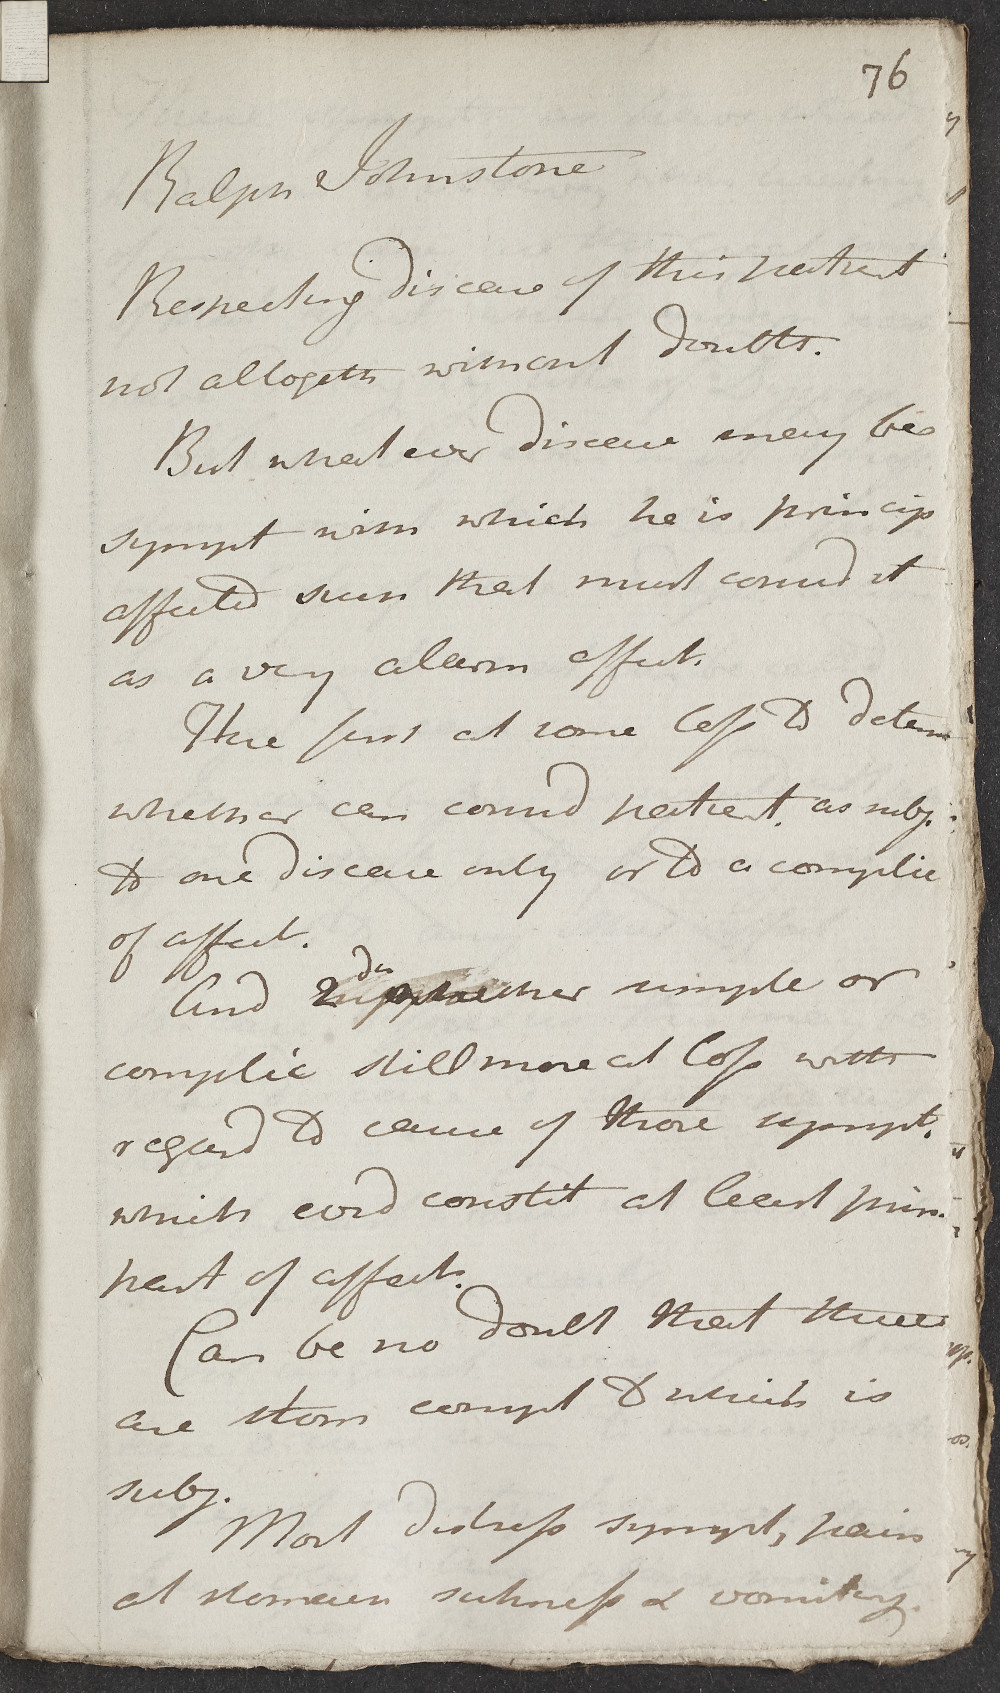 76
Ralph Johnstone
Respecting disease of this patient
not altogeth without doubts.
But whatever disease may be
sympt with which he is princip
affected such that must consid it
as a very alarm affect.
Here first at some loss to determ
whether can consid patient as subj.
to one disease only or to a complic
of affect.
And 2dly whether simple or
complic still more at loss with
regard to cause of those sympt.
which evid constit at least prin.
part of affect.
Can be no doubt that three
are stom compl to which is
subj.
Most distress sympt, pain
at stomach sickness & vomiting.